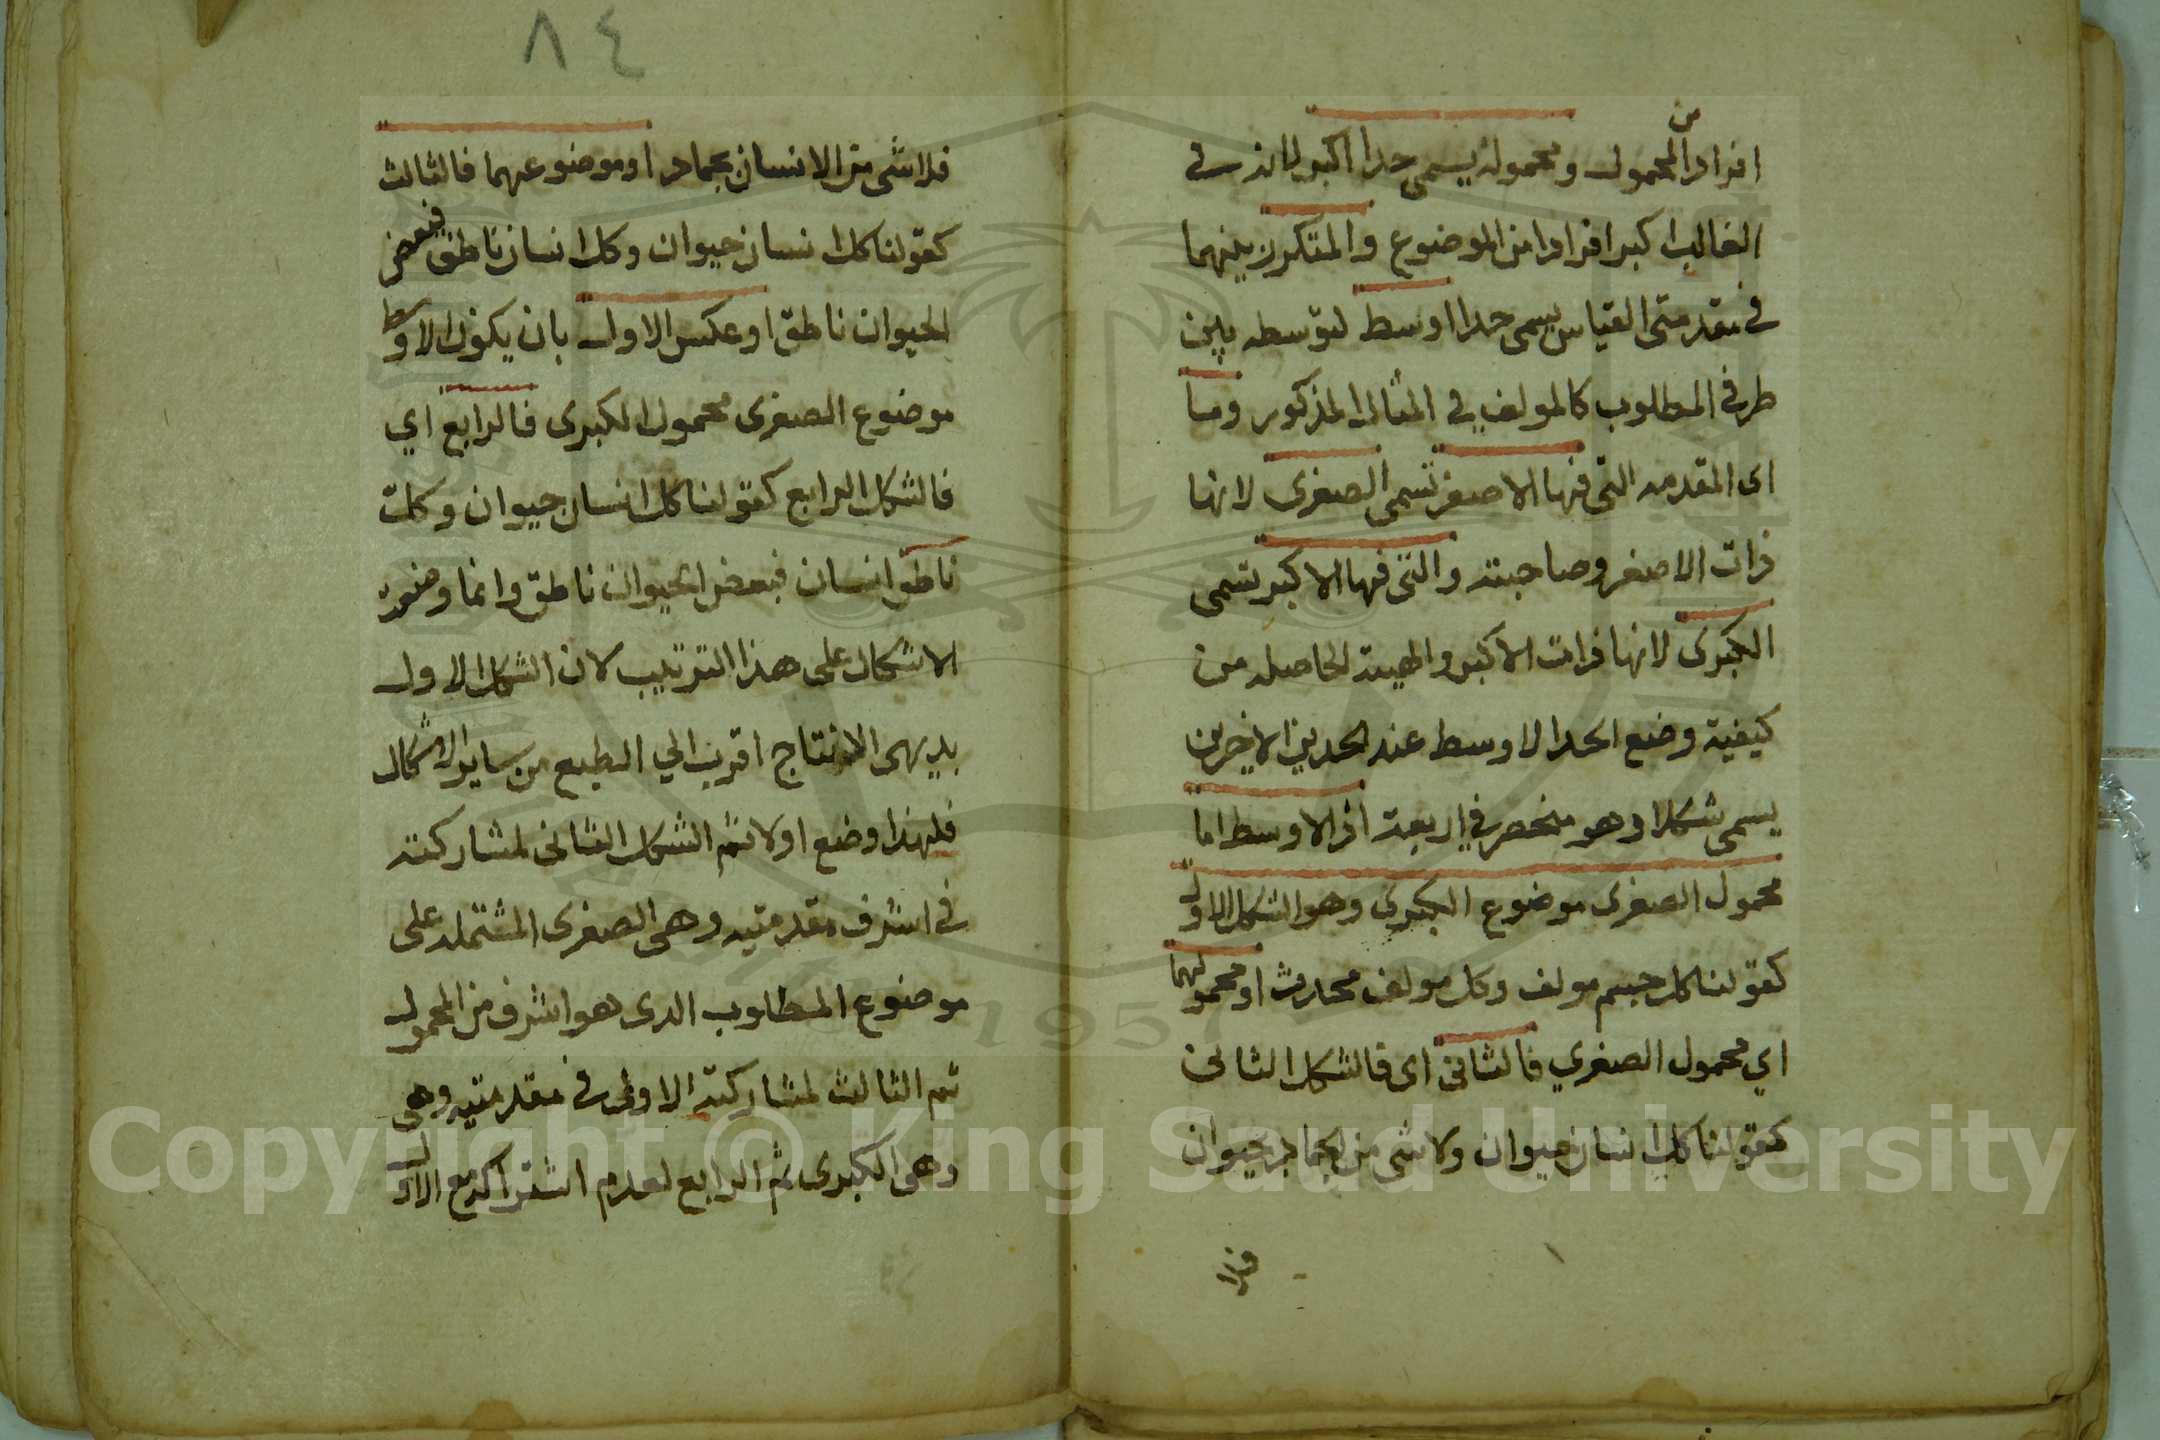 من
افرادا المحمول ومحموله يسمى حدا اكبر لانه في
الغالب اكبر افرادا من الموضوع والمتكرر بينهما
في مقدمتى القياس يسمى حدا اوسط لتوسطه بين
طرفي المطلوب كالمولف في المثال المذكور وما
اى المقدمه التى فيها الاصغر تسمى الصغرى لانها
ذات الاصغر وصاحبته والتى فيها الاكبر تسمى
الكبرى لانها ذات الاكبر والهيئة الحاصله من
كيفية وضع الحد الاوسط عند الحدين الاخرين
يسمى شكلا وهو منحصر في اربعة اذ الاوسط اما
محمول الصغرى موضوع الكبرى وهو الشكل الاول
كقولنا كل جسم مولف وكل مولف محدث او محمولهما
اي محمول الصغري فالثانى اى فالشكل الثانى
كقولنا كل انسان حيوان ولا شى من الجماد بحيوان
فلا
٨٤
فلا شى من الانسان بجماد او موضوعهما فالثالث
كقولنا كل انسان حيوان وكل انسان ناطق فبعض
الحيوان ناطق او عكس الاول بان يكون الاوسط
موضوع الصغرى محمول الكبرى فالرابع اي
فالشكل الرابع كقولنا كل انسان حيوان وكل
ناطق انسان فبعض الحيوان ناطق وانما وضعت
الاشكال على هذا الترتيب لان الشكل الاول
بديهى الانتاج اقرب الي الطبع من ساير الاشكال
فلهذا وضع اولا ثم الشكل الثانى لمشاركته
في اشرف مقدمتيه وهى الصغرى المشتمله على
موضوع المطلوب الدى هو اشرف من المحمول
ثم الثالث لمشاركته الاول في مقدمتيه وهى
وهى الكبرى ثم الرابع لعدم اشتراكه مع الاول
Copyright © King Saud University
1957